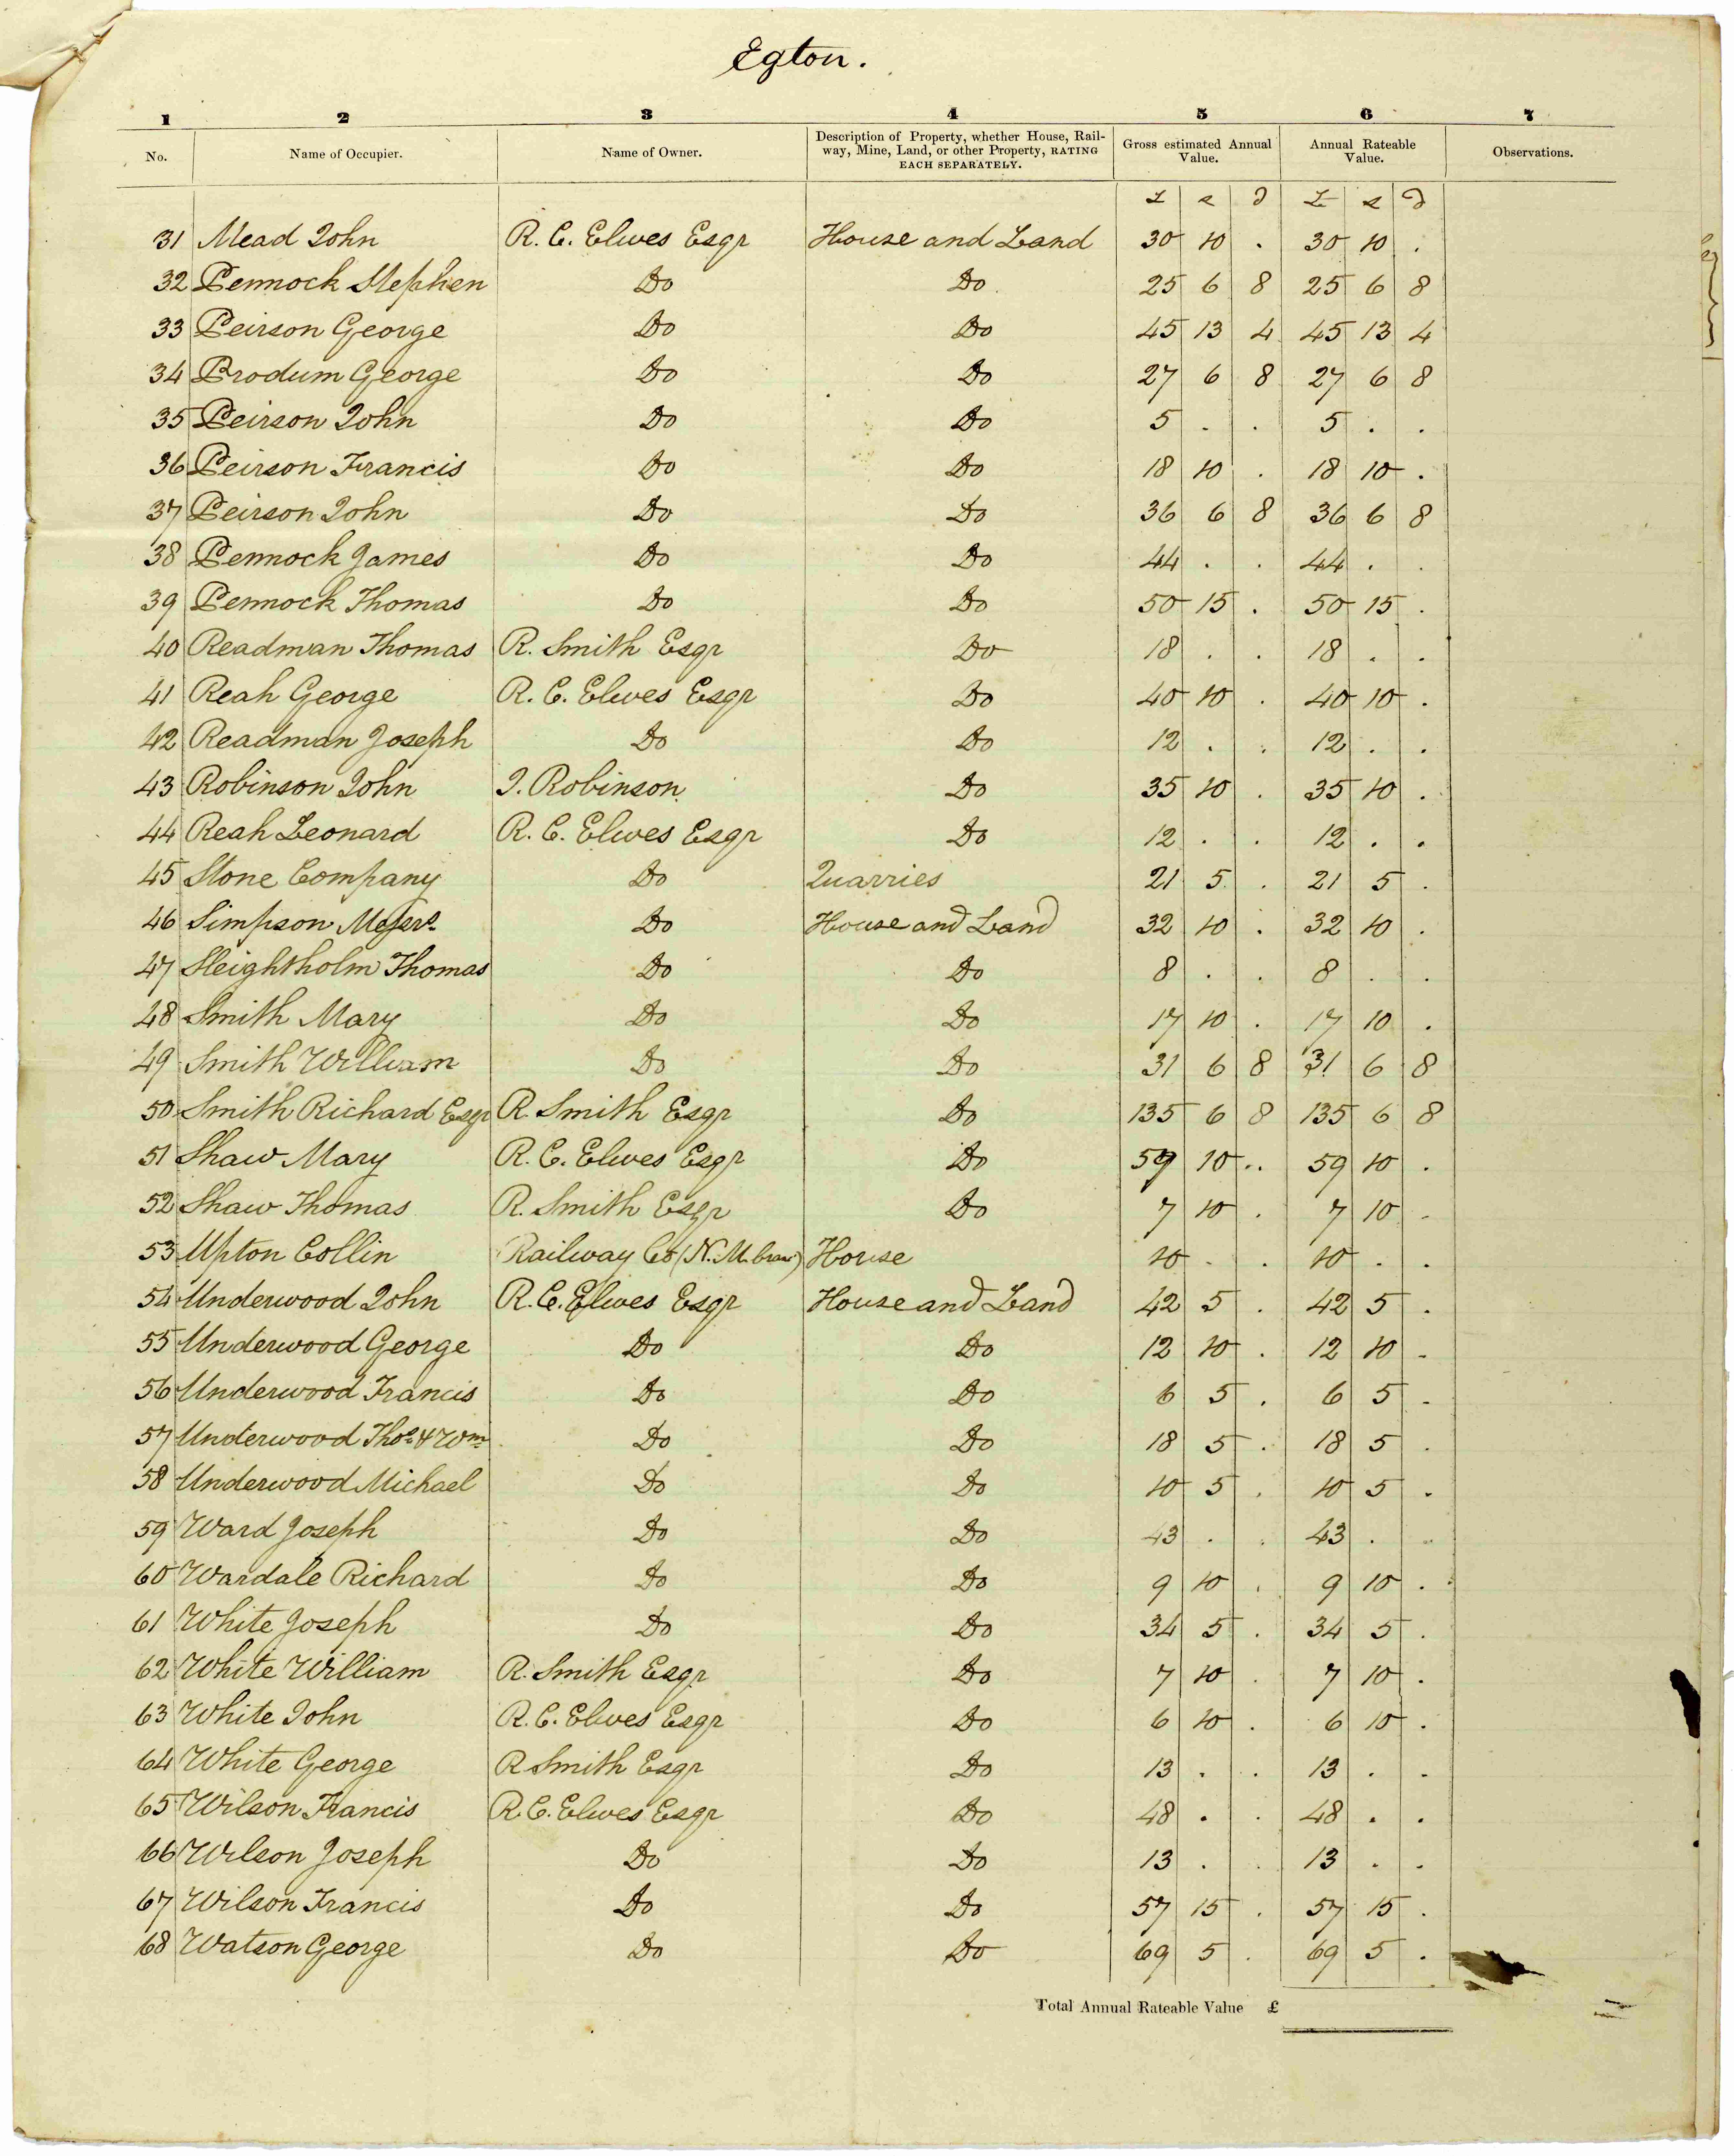 Egton.
1 2 3 4 5 6 7
No. Name of Occupier. Name of Owner. Description of Property, whether House, Rail-way, Mine, Land, or other Property, RATING EACH SEPARATELY. Gross estimated Annual Value. Annual Rateable Value. Observations.
£ s d £ s d
31 Mead John R. C. Elwes Esqr House and Land 30 10 . 30 10 .
32 Pennock Stephen Do Do 25 6 8 25 6 8
33 Peirson George Do Do 45 13 4 45 13 4
34 Brodum George Do Do 27 6 8 27 6 8
35 Peirson John Do Do 5 . . 5 . .
36 Peirson Francis Do Do 18 10 . 18 10 .
37 Peirson John Do Do 36 6 8 36 6 8
38 Pennock James Do Do 44 . . 44 . .
39 Pennock Thomas Do Do 50 15 . 50 15 .
40 Readman Thomas R. Smith Esqr Do 18 . . 18 . .
41 Reah George R. C. Elwes Esqr Do 40 10 . 40 10 .
42 Readman Joseph Do Do 12 . . 12 . .
43 Robinson John J. Robinson Do 35 10 . 35 10 .
44 Reah Leonard R. C. Elwes Esqr Do 12 . . 12 . .
45 Stone Company Do Quarries 21 5 . 21 5 .
46 Simpson Messrs Do House and Land 32 10 . 32 10 .
47 Sleightholm Thomas Do Do 8 . . 8 . .
48 Smith Mary Do Do 17 10 . 17 10 .
49 Smith William Do Do 31 6 8 31 6 8
50 Smith Richard Esqr R. Smith Esqr Do 135 6 8 135 6 8
51 Shaw Mary R. C. Elwes Esqr Do 59 10 .. 59 10 .
52 Shaw Thomas R. Smith Esqr Do 7 10 . 7 10 .
53 Upton Collin Railway Co (N. M. House 10 . . 10 . .
54 Underwood John R. C. Elwes Esqr House and Land 42 5 . 42 5 .
55 Underwood George Do Do 12 10 . 12 10 .
56 Underwood Francis Do Do 6 5 . 6 5 .
57 Underwood Thos & Wm Do Do 18 5 . 18 5 .
58 Underwood Michael Do Do 10 5 . 10 5 .
59 Ward Joseph Do Do 43 . . 43 . .
60 Wardale Richard Do Do 9 10 . 9 10 .
61 White Joseph Do Do 34 5 . 34 5 .
62 White William R. Smith Esqr Do 7 10 . 7 10 .
63 White John R. C. Elwes Esqr Do 6 10 . 6 10 .
64 White George R Smith Esqr Do 13 . . 13 . .
65 Wilson Francis R. C. Elwes Esqr Do 48 . . 48 . .
66 Wilson Joseph Do Do 13 . . 13 . .
67 Wilson Francis Do Do 57 15 . 57 15 .
68 Watson George Do Do 69 5 . 69 5 .
Total Annual Rateable Value £